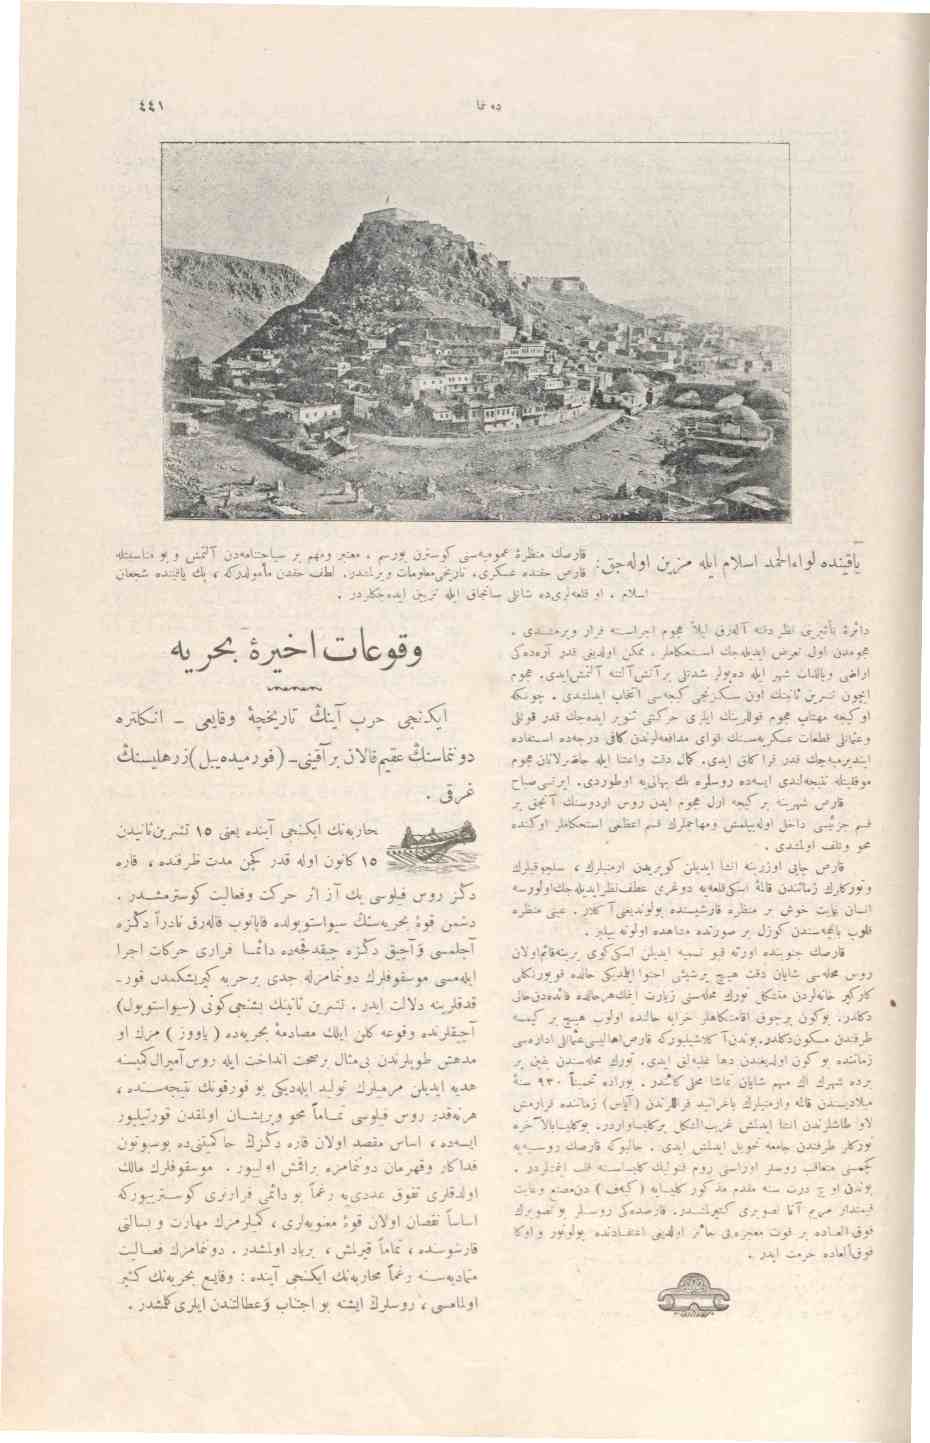 ٤٤١
ياقينده لواءالحمد اسلام ايله مزين اوله‌جق :
قارصك منظرۀ عموميه‌سنى كوسترن بورسم ، معتبر ومهم بر سياحتنامه‌دن آلنمش و بو مناسبتله
قارص حقنده عسكرى، تاريخى معلومات ويرلمشدر. لطف حقدن مأمولدركه ، پك ياقينده شجعان
اسلام . او قلعه‌لرى‌ده شانلى سانجاق ايله تزيين ايده‌جكلردر .
دائرۀ تأثيرينى نظر دقته آله‌رق ليلاً هجوم اجراسنه قرار ويرمشدى .
هجومدن اول تعرض ايديله‌جك استحكاملر ، ممكن اولديغى قدر آره‌ده‌كى
اراضى وبالذات شهر ايله ده‌پولر شدتلى بر آتش آلتنه آلنمش ايدى. هجوم
ايچون تشرين ثانينك اون سكزنجى كيجه‌سى انتخاب ايدلمشدى . چونكه
او كيجه مهتاب هجوم قوللرينك ايلرى حركتنى تنوير ايده‌جك قدر قوتلى
وعثمانلى قطعات عسكريه‌سنك قواى مدافعه‌لرندن كافى درجه‌ده استفاده
ايتديرميه‌جك قدر قراكلق ايدى. كمال دقت واعتنا ايله حاضرلانان هجوم
موفقيتله نتيجه‌لندى ايسه‌ده روسلره پك بهالى‌يه اوطوردى. ايرتسى صباح
قارص شهرينه بر كيجه اول هجوم ايدن روس اردوسنك آنجق بر
قسم جزئيسى داخل اوله‌بيلمش ومهاجملرك قسم اعظمى استحكاملر اوكنده
محو وتلف اولمشدى .
قارص چايى اوزرينه انشا ايديلن كوپريدن ارمنيلرك ، سلجوقيلرك
وتوركلرك زماننندن قالمۀ اسكى قلعه‌يه دوغرى عطف نظر ايديله‌جك اولورسه
انسان غايت خوش بر منظره قارشيسنده بولونديغنى آكلار. عينى منظره
قلوب باغچه‌سندن كوزل بر صورتده مشاهده اولونه بيلير .
قارصك جنوبنده اورته قپو تسميه ايديلن اسكى كوى يرينه قائم اولان
روس محله‌سى شايان دقت هيچ برشيئى احتوا ايتمديكى حالده
كاركير خانه‌لردن متشكل تورك محله‌سنى زيارت ايتمك هرحالده فائده‌دن خالى
دكلدر. بوكون برچوق اقامتكاهلر خرابه حالنده اولوب هيچ بر كيمسه
طرفندن مسكون دكلدر. بوندن آكلاشيليوركه قارص اهاليسى عثمانلى اداره‌سى
زماننده بو كون اولديغندن دها غلبه‌لق ايدى. تورك محله‌سندن غيرى بر
يرده شهرك اك مهم شايان تماشا محلى كائندر. بوراده تخميناً ٩٣٠ سنۀ
ميلاديسندن قالمه وارمنيلرك باغراتيد قراللرندن (آباس) زماننده قرارمش
لاو طاشلرندن انشا ايدلمش غريب الشكل بركليسا واردر. بوكليسا بالآخره
توركلر طرفندن جامعه تحويل ايدلمش ايدى . حالبوكه قارصك روسيه‌يه
كچمسى متعاقب روسلر اوراسنى روم قتوليك كليساسنه قلب ايتمشلردر .
بوندن او چ درت سنه مقدم مذكور كليسايه (كيه‌ف) دن مصنع وغايت
قيمتدار مريم آنا تصويرى كتيرلمشدر. قارصده‌كى روسلر بو تصويرك
فوق‌العاده بر قوت معجزه‌يى حائز اولديغى اعتقادنده بولونور و اوكا
فوق‌العاده حرمت ايدر .
وقوعات اخيرۀ بحريه
ايكنجى حرب آينك تاريخچۀ وقايعى – انكلتره
دونماسنك عقيم قالان بر آقينى – (فورميده‌بيل) زرهليسنك
غرقى .
محاربه‌نك ايكنجى آينده يعنى ١٥ تشرين ثانيدن
١٥ كانون اوله قدر كچن مدت ظرفنده ، قاره
دكز روس فيلوسى پك آز اثر حركت وفعاليت كوسترمشدر .
دشمن قوۀ بحريه‌سنك سيواستوپولده قاپانوب قاله‌رق نادراً دكزه
آچلمسى و آچيق دكزه چيقدقجه‌ده دائما فرارى حركات اجرا
ايله‌مسى موسقوفلرك دونمامزله جدى بر حربه كيريشكمدن قور-
قدقلرينه دلالت ايدر. تشرين ثانينك بشنجى كونى (سيواستوپول)
آچيقلرنده وقوعه كلن ايلك مصادمۀ بحريه‌ده ( ياووز ) مزك او
مدهش طوپلرندن بى‌مثال برصحت انداخت ايله روس آميرال كميسنه
هديه ايديلن مرميلرك توليد ايله‌ديكى بو قورقونك نتيجه‌سنده ،
هرنه‌قدر روس فيلوسى تماماً محو وپريشان اولمقدن قورتيليور
ايسه‌ده ، اساس مقصد اولان قاره دكزك حاكميتنى‌ده بوسبوتون
فداكار وقهرمان دونمامزه براقمش اوليور . موسقوفلرك مالك
اولدقلرى تفوق عددى‌يه رغماً بو دائمى فرارلرى كوستريبوركه
اساساً نقصان اولان قوۀ معنويه‌لرى ، كميلرمزك مهارت و بسالتى
قارشوسنده ، تماماً قيرلمش ، برباد اولمشدر . دونمامزك فعاليت
متماديه‌سنه رغماً محاربه‌نك ايكنجى آينده : وقايع بحريه‌نك كثير
اولمامسى ، روسلرك ايشته بو اجتناب و عطالتندن ايلرى كلمشدر .